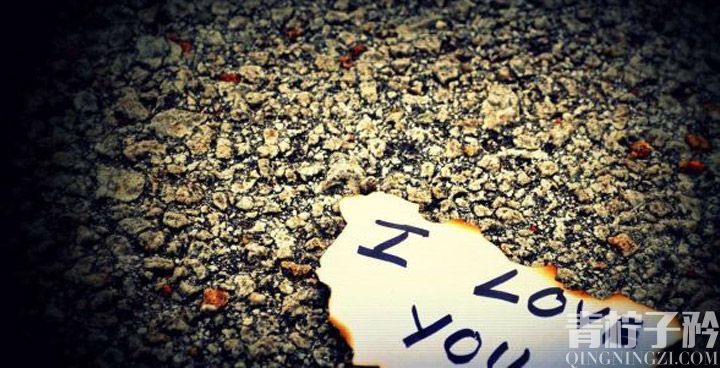 I
LOVE
YOU
青柠子矜
QINGNINGZI.COM